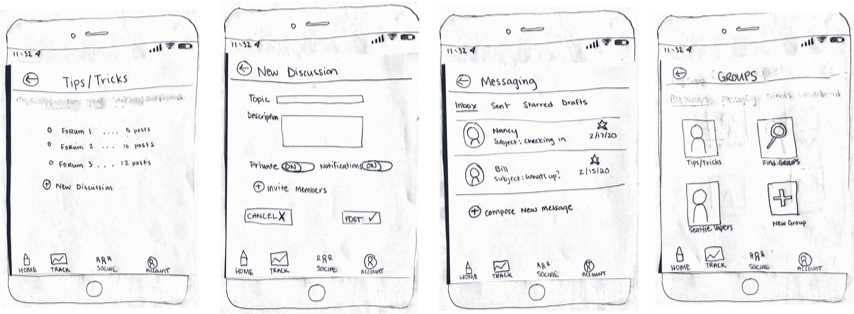 11:52
Tips/Tricks
Forum 1 .... 5 posts
Forum 2 .... 16 posts
Forum 3 .... 12 posts
New Discussion
HOME TRACK SOCIAL ACCOUNT
11:52
New Discussion
Topic
Description
Private ON Notifications ON
Invite Members
CANCEL X POST ✓
HOME TRACK SOCIAL ACCOUNT
11:52
Messaging
Inbox Sent Starred Drafts
Nancy
Subject: Checking in 2/17/20
Bill
Subject: What's up? 2/15/20
Compose New Message
HOME TRACK SOCIAL ACCOUNT
11:52
GROUPS
My Groups Messaging Friends Leaderboard
Tips/Tricks Find Groups
Seattle Vapers New Group
HOME TRACK SOCIAL ACCOUNT